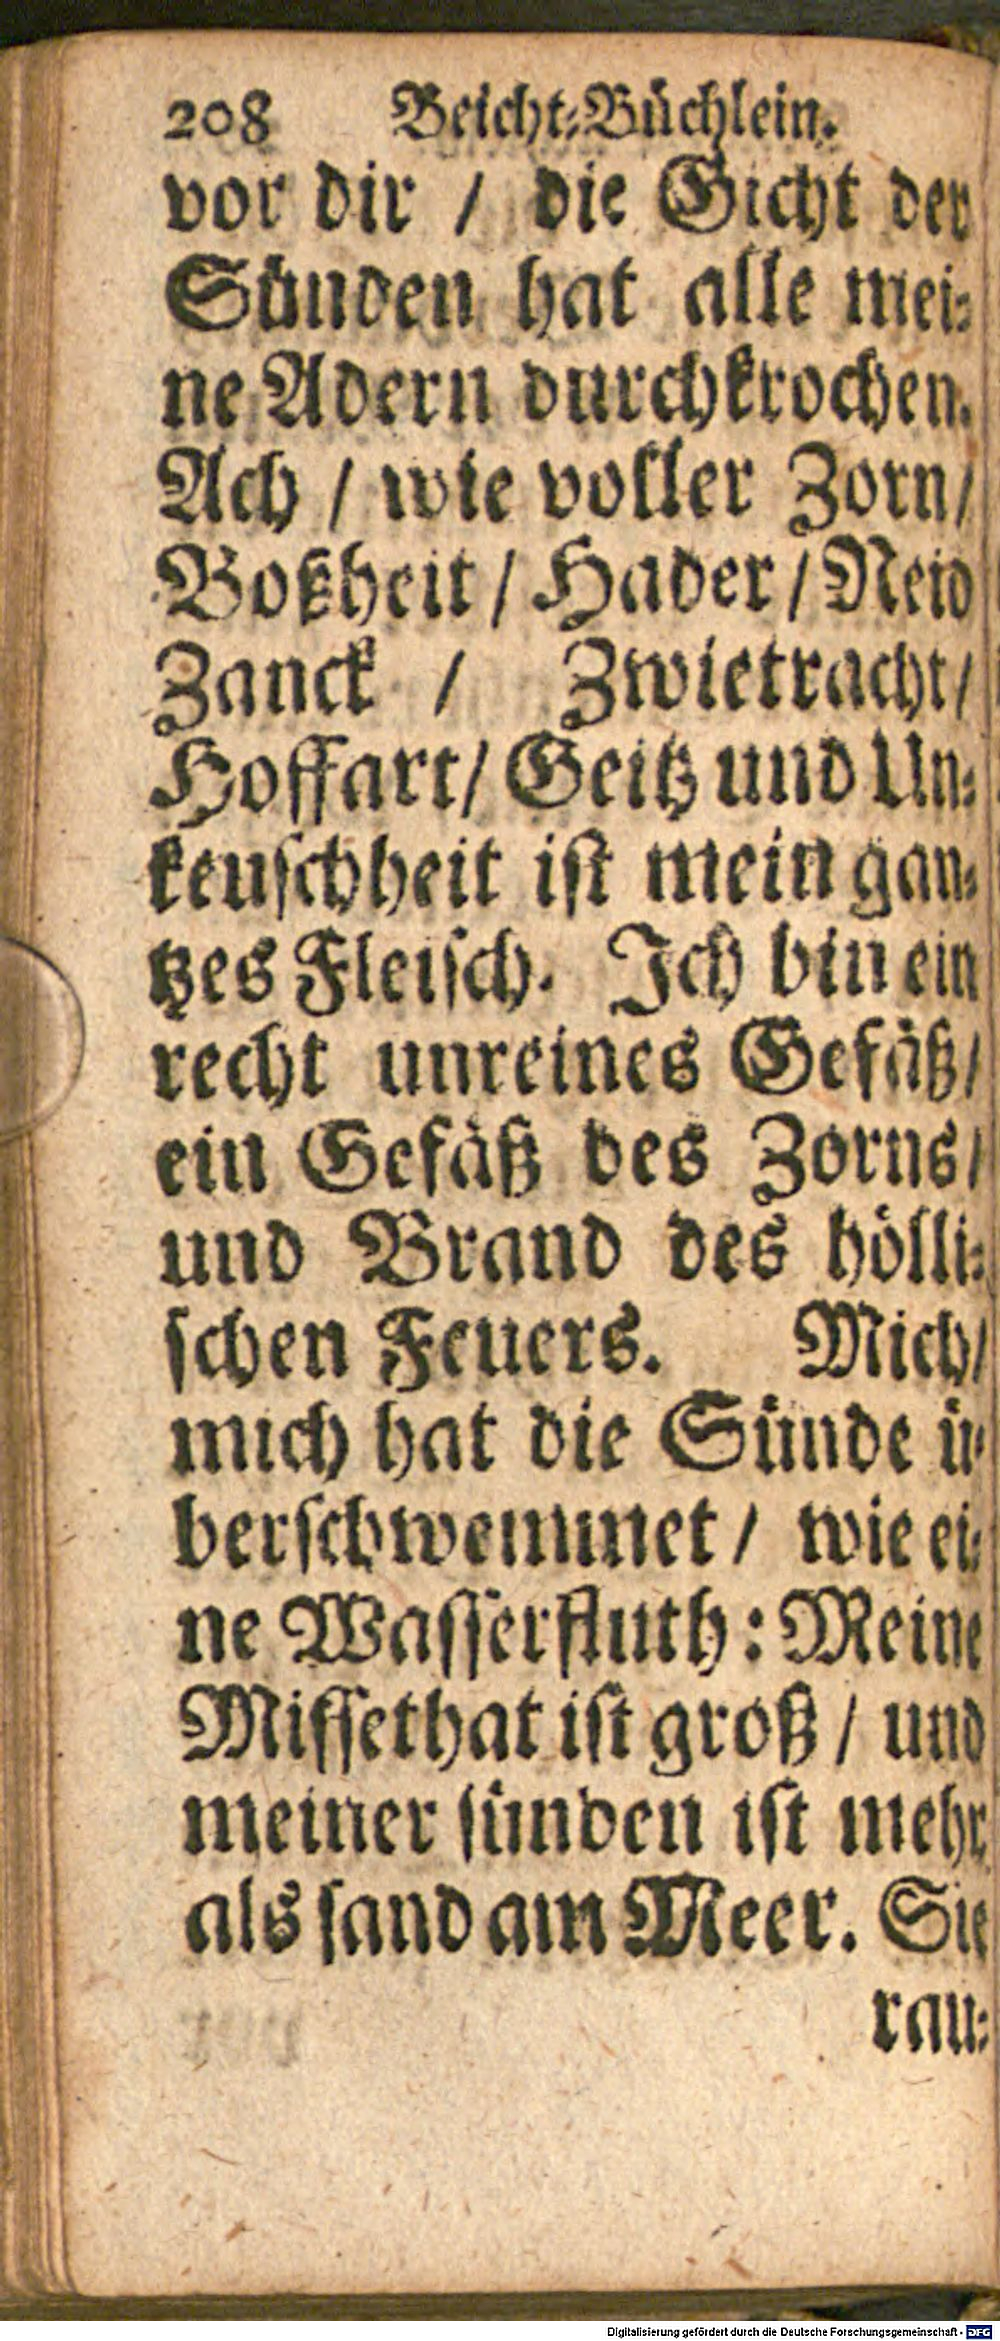 208 Beicht-Büchlein.
vor dir / die Gicht der
Sünden hat alle mei-
ne Adern durchkrochen.
Ach / wie voller Zorn/
Boßheit / Hader / Neid
Zanck / Zwietracht/
Hoffart/ Geitz und Un-
keuschheit ist mein gan-
tzes Fleisch. Ich bin ein
recht unreines Gefäß/
ein Gefäß des Zorns/
und Brand des hölli-
schen Feuers. Mich/
mich hat die Sünde ü-
berschwemmet / wie ei-
ne Wasserfluth: Meine
Missethat ist groß / und
meiner sünden ist mehr
als sand am Meer. Sie
rau-
Digitalisierung gefördert durch die Deutsche Forschungsgemeinschaft - DFG